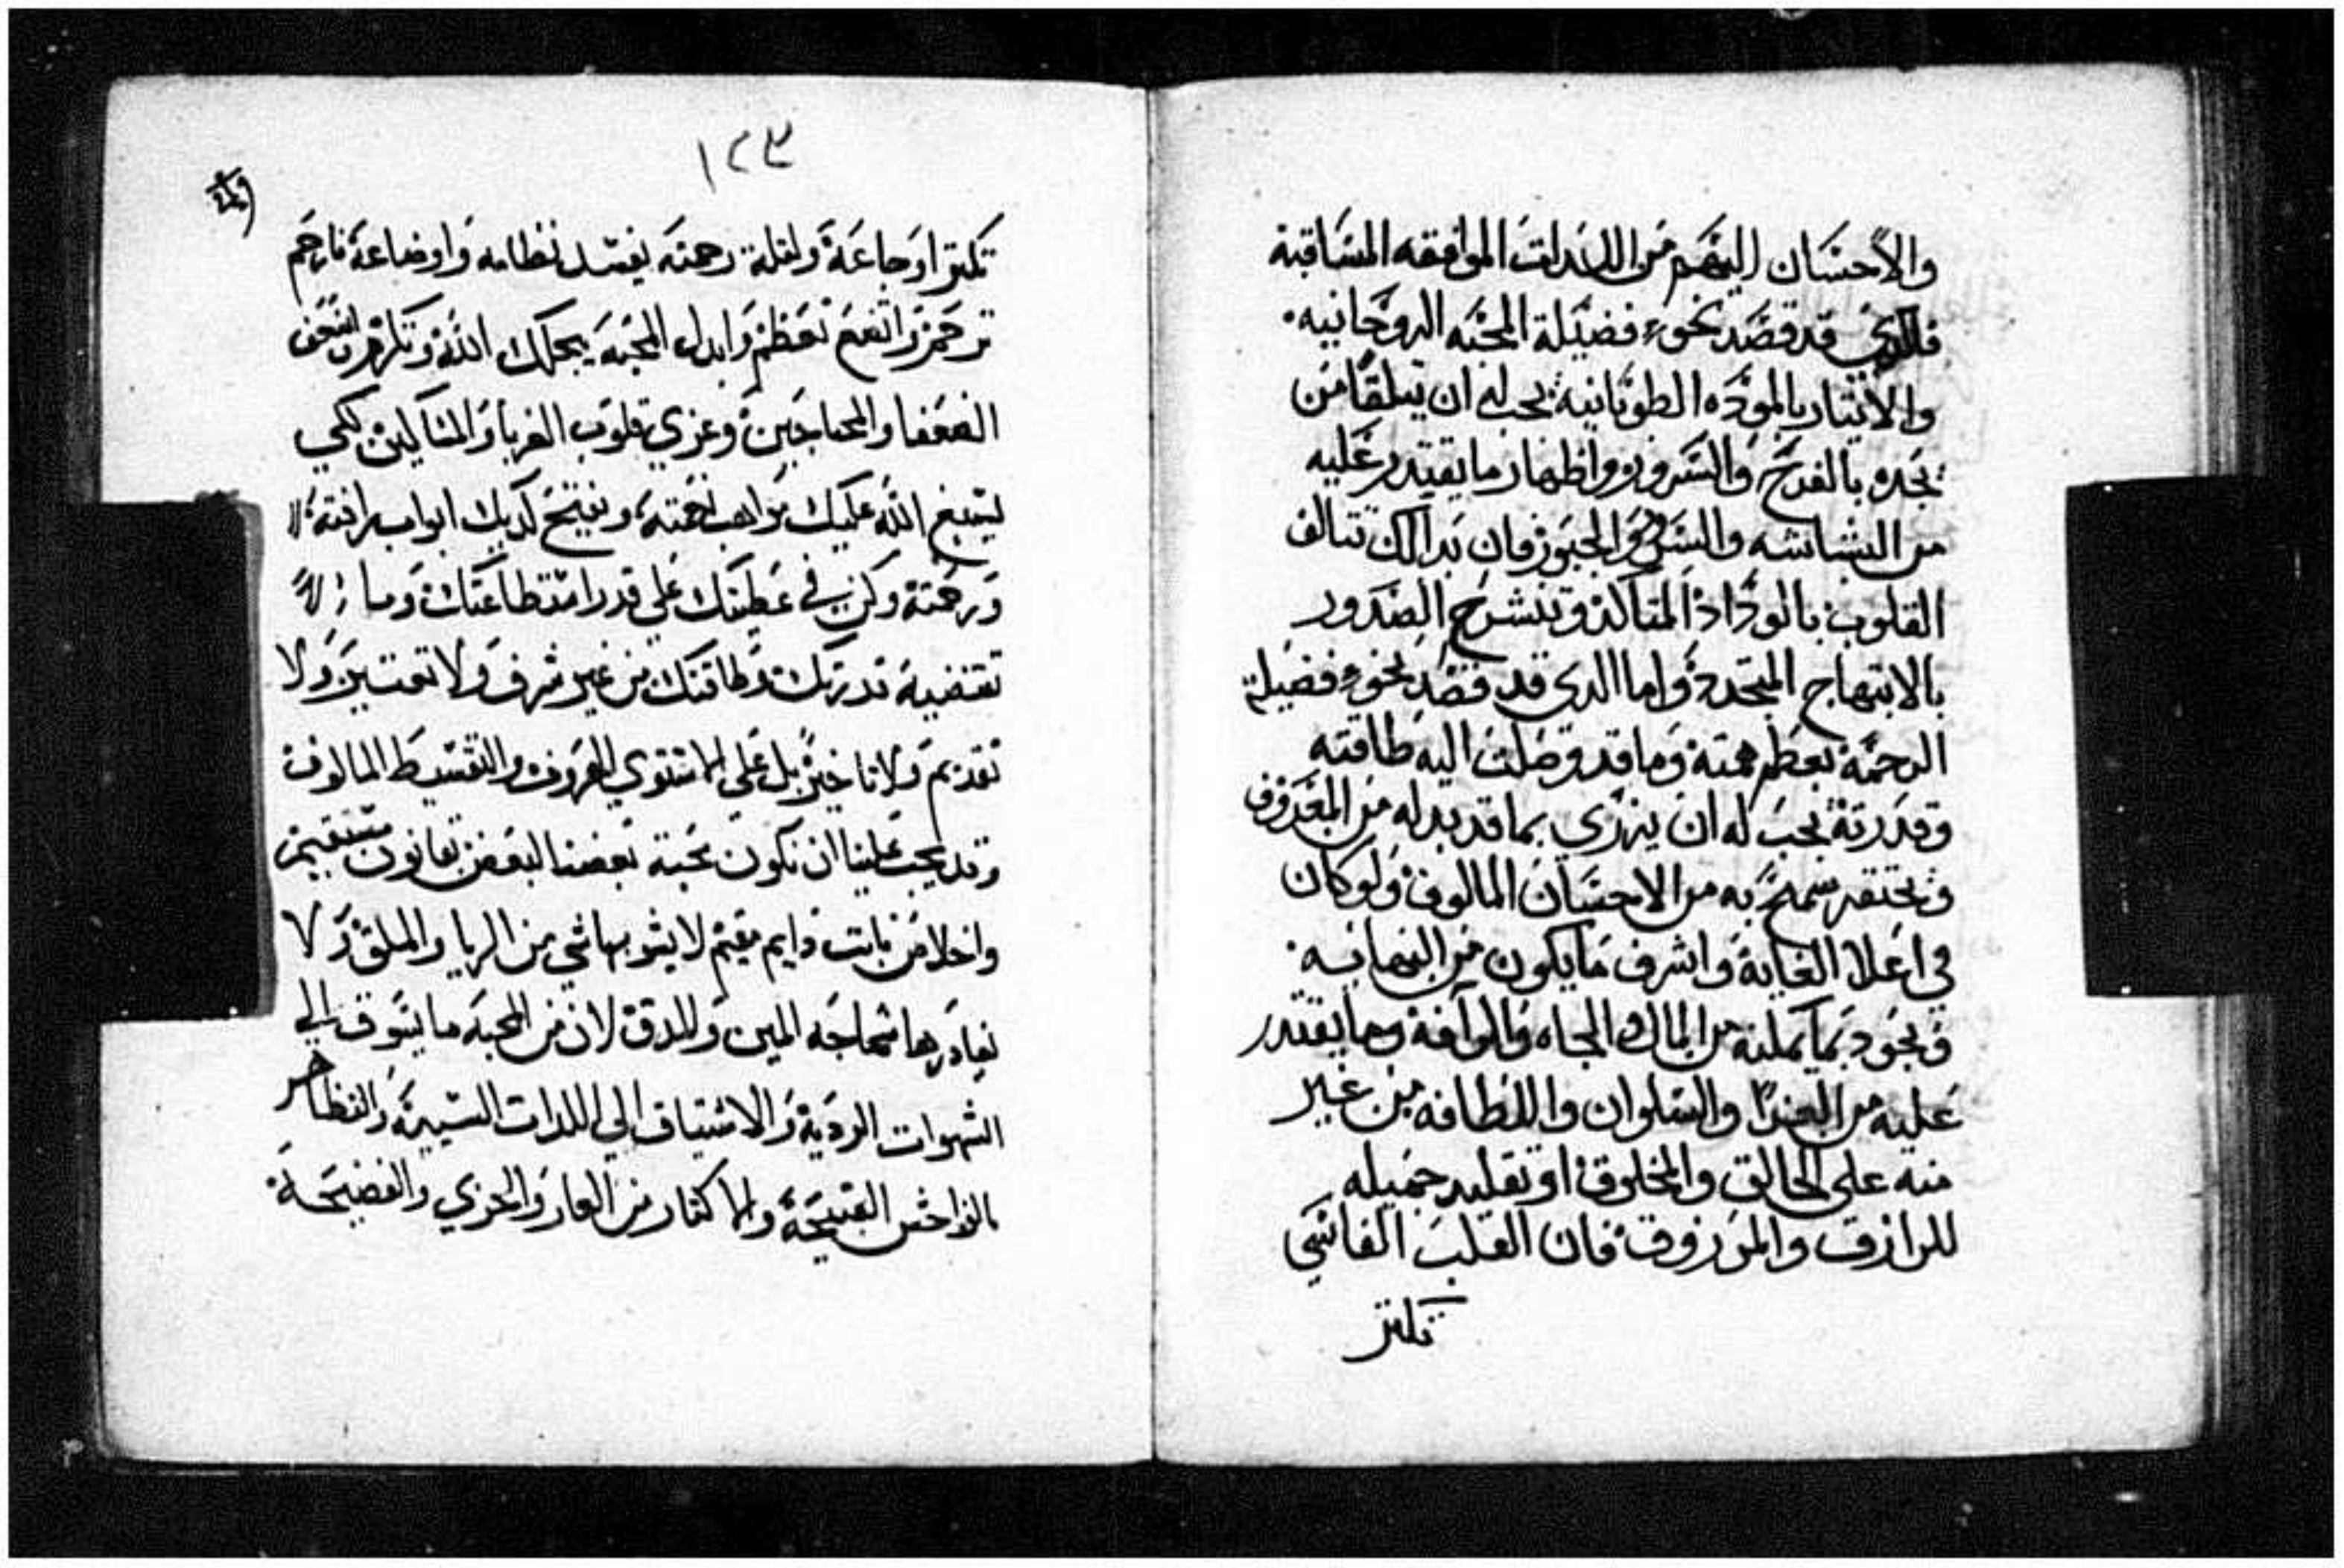 والاحسان اليهم من الموافقه
قد قصد نحو فضيلة المحبه الروحانيه.
والايتار بالموده الطوبانيه يجب له ان يتلقا من
يجده بالفرح والسرور واظهار ما يقتدر عليه
من البشاشه والسرور والحبور فان بدالك تتالف
القلوب بالوداد المتاكد وتنشرح الصدور
بالابتهاج المتجدد واما الدي قد قصد نحو فضيلة
الرحمة بعظم همته وما قد وصلت اليه طاقته
وقدرته يجب له ان يزري بما قد بدله من المعروف
ويحتقر سمح به من الاحسان المالوف ولو كان
في اعلا الغاية واشرف ما يكون من النهايه.
ويجود بما يملكه من المال والجاه والرافة وما يقتدر
عليه من العزا والسلوان واللطافه من غير
منه على الخالق والمخلوق او تقليد جميله
للرازق والمرزوق فان القلب القاسي
تكتر
١٢٣
تكتر اوجاعة ولقلة رحمته يفسد نظامه واوضاعة فارحم
ترحم وانعم تعظم وابدل المحبة
الضعفا والمحتاجين وعزي قلوب الغربا والمساكين لكي
يسبغ الله عليك مواهب نعمته ويفتح لديك ابواب رافته
ورحمته وكن في عطيتك على قدر استطاعتك وما
تقتضيه قدرتك وطاقتك من غير شرف ولا تقتير ولا
تقديم ولا تاخير بل على المستوي المعروف والتقسيط المالوف
وقد يجب علينا ان تكون محبة بعضنا لبعض بقانون مستقيم
واخلاص تابت دايم مقيم لا يشوبها شي من الريا والملق ولا
يغادرها سماجة المين والمدق لان من المحبة ما يسوق الي
الشهوات الردية والاشتياق الي اللدات والتظاهر
بالفواحش القبيحة والاكتار من العار والخزي والفضيحة.